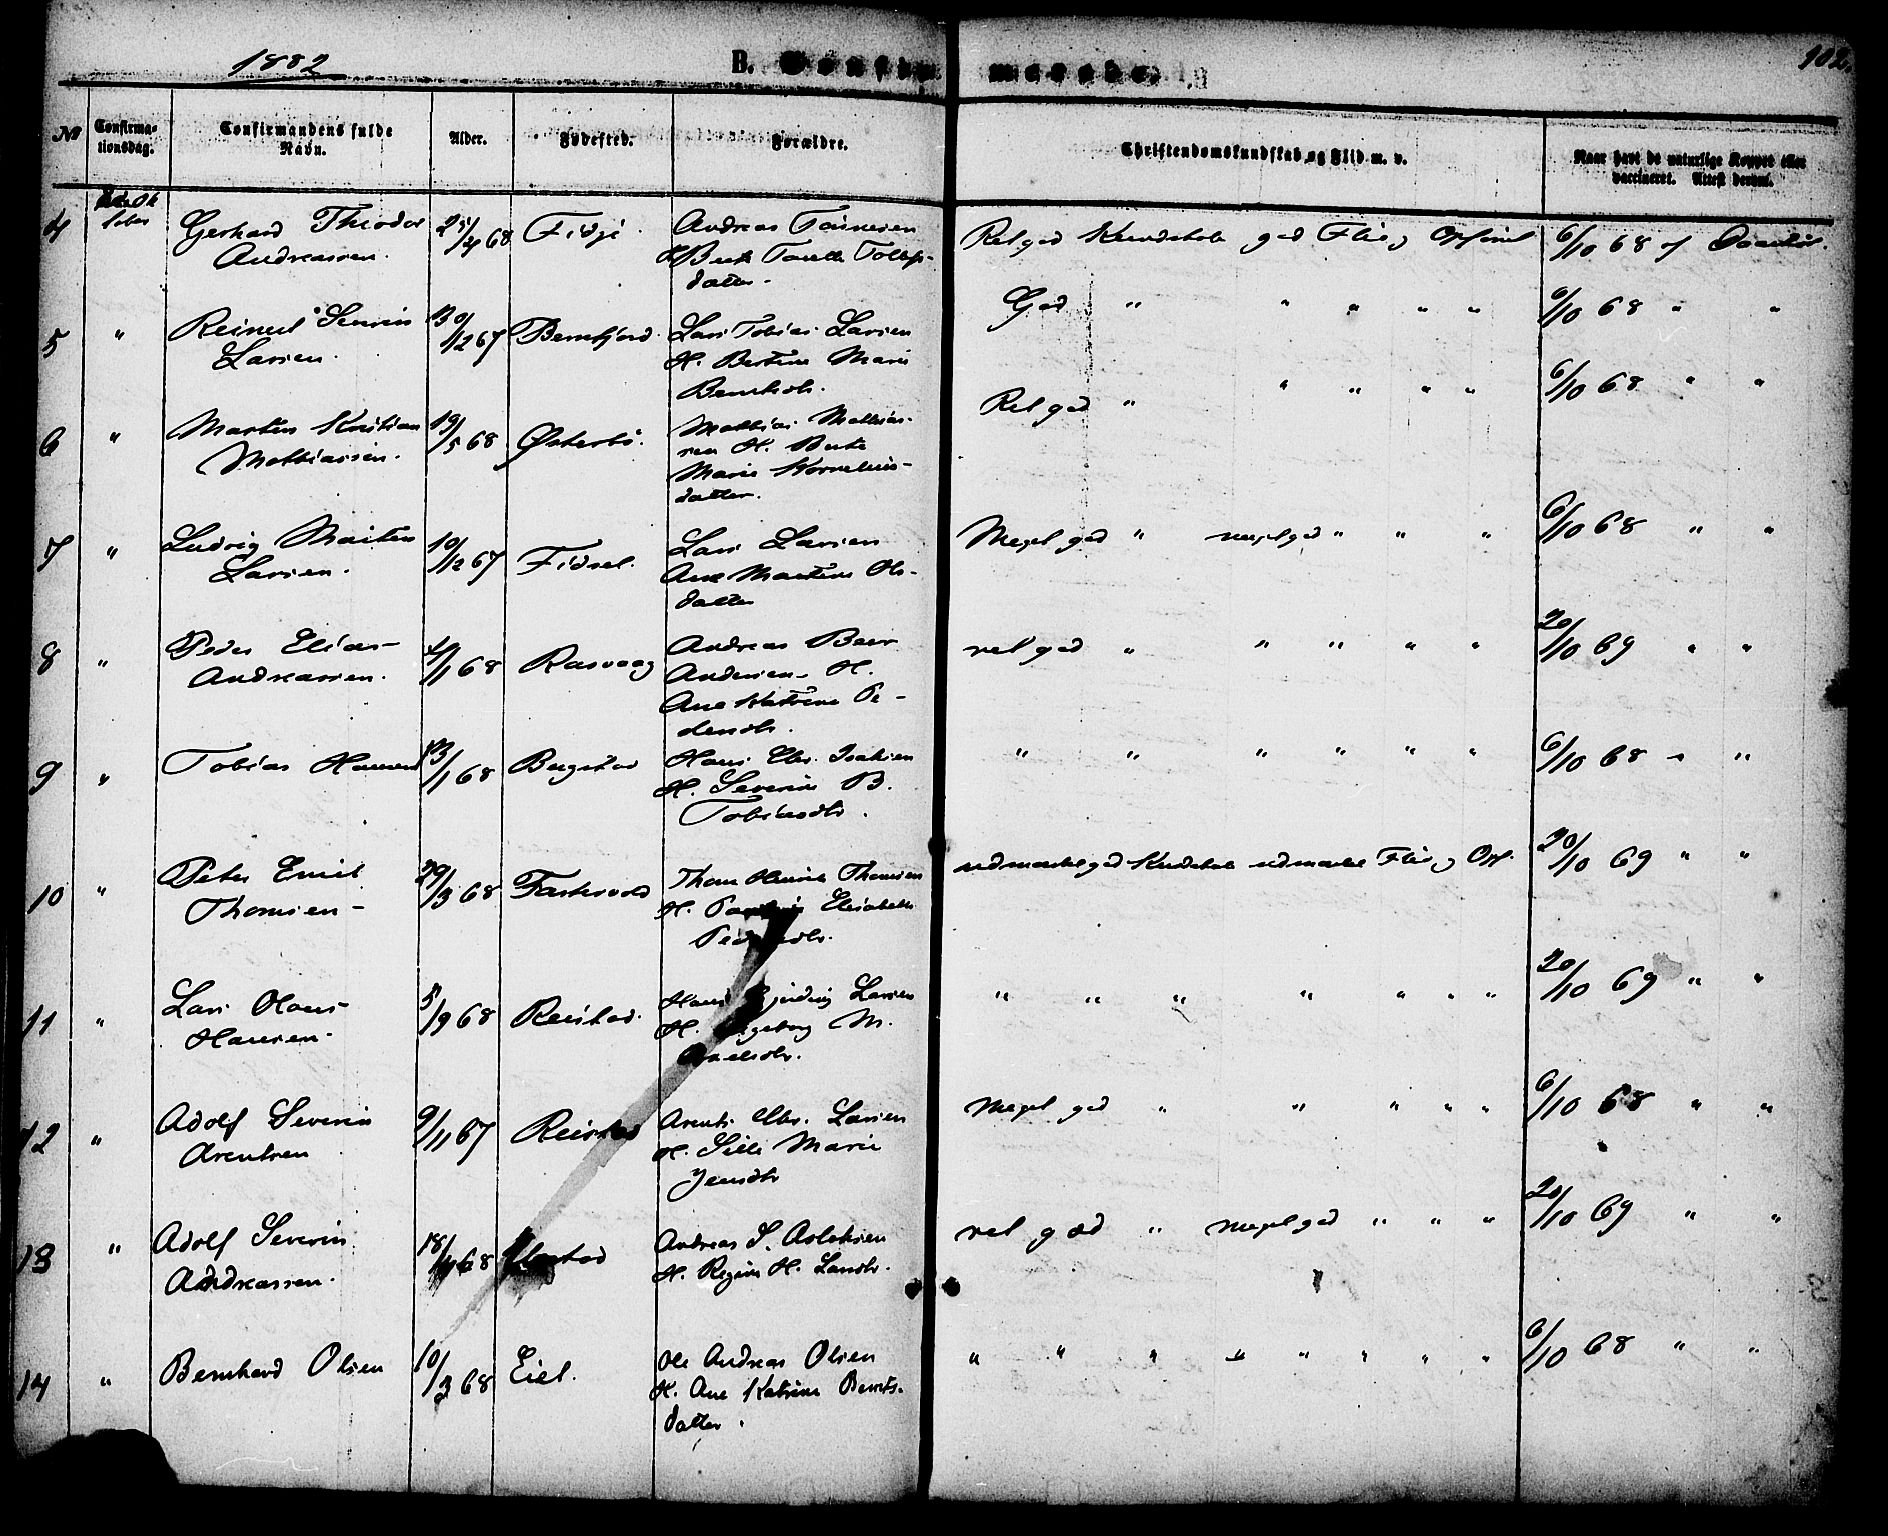 1882 B. Confirmerede. 102.
№ Confirmationsdag. Confirmandens fulde Navn. Alder. Fødested. Forældre. Christendomskundskab og Flid m. v. Naar havt de naturlige Kopper eller vaccineret. Attest derom.
4 Gerhard Theodor 25/4 68 Fidje. Andreas Tønnesen Ret god Kundskab god Flid og Opførsel 6/10 68 af
Andreassen. datter.
5 " Reinert Severin 30/12 67 Berrefjord. Lars Tobias Larsen God " " " " " 6/10 68 " "
Larsen. H. Bertine Marie
6 " Morten Kristian 19/5 68 Østerbø. Mathias Mathias- Ret god " " " " " 6/10 68 " "
Mathiassen. sen H. Berte
Marie Kornelius-
datter.
7 " Ludvig Martin 10/12 67 Fidsel. Lars Larsen Meget god " meget god " " " 6/10 68 " "
Larsen. Ane Martine Ols-
datter
8 " Peder Elias 4/1 68 Rasvaag Andreas Beer ret god " " " " " 20/10 69 " "
Andreassen. Andersen H.
Ane Katrine Pe-
dersdtr.
9 " Tobias Hansen 13/1 68 Bugstad Hans Isaksen " " " " " " 6/10 68 " "
H. Severine B.
Tobiasdtr.
10 " Peter Emil 29/3 68 Farsvold Hendrik Thomsen udmærket god Kundskab udmærket Flid og Opf. 20/10 69 " "
Thomsen H. Elisabeth
11 " Lars Hans 5/9 68 Reistad. Hans Larsen " " " " " " " 20/10 69 " "
Hansen. H. Ingeborg M.
12 " Adolf Severin 9/11 67 Reistad Arnt Larsen Meget god " " " " " 6/10 68 " "
Arentsen H. Sille Marie
Jensdtr
13 " Adolf Severin 18/ 68 Andreas S. Aslaksen ret god " meget god " " " 20/10 69 " "
Andreassen. H. Regine H. Larsdtr.
14 " Bernhard Olsen 10/3 68 Eiel. Ole Andreas Olsen " " " " " " " " 6/10 68 " "
H. Ane Katrine Bernts-
datter.